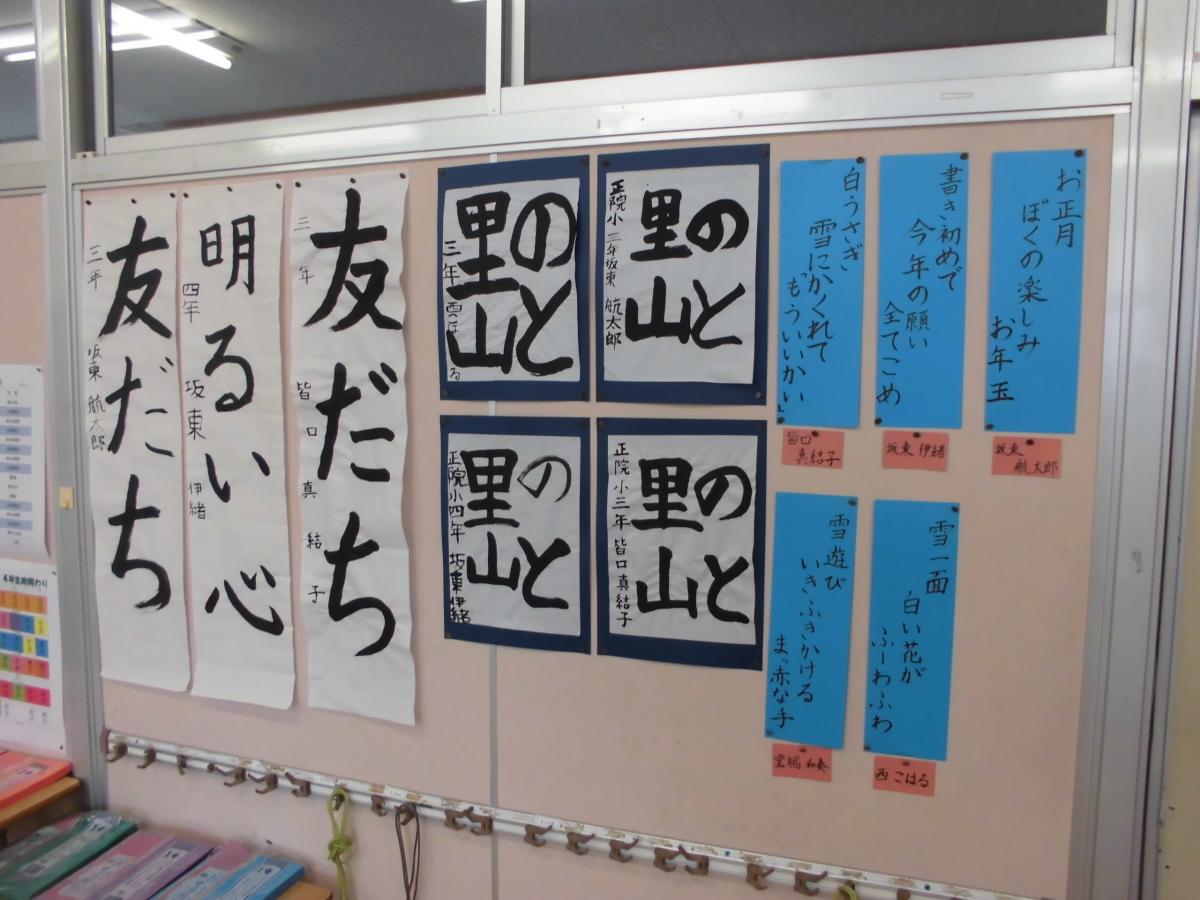 友だち
三年
坂東 航太郎
明るい心
四年
坂東 伊緒
友だち
三年
皆口 真結子
里の
山と
三年 西こはる
里の
山と
正院小 三年 坂東 航太郎
里の
山と
正院小四年 坂東伊緒
里の
山と
正院小三年 皆口真結子
白うさぎ
雪にかくれて
もういいかい
皆口
真結子
書き初めで
今年の願い
全てこめ
坂東 伊緒
お正月
ぼくの楽しみ
お年玉
坂東
航太郎
雪遊び
いきふきかける
まっ赤な手
和奏
雪一面
白い花が
ふーわふわ
西 こはる
4年生時間わり